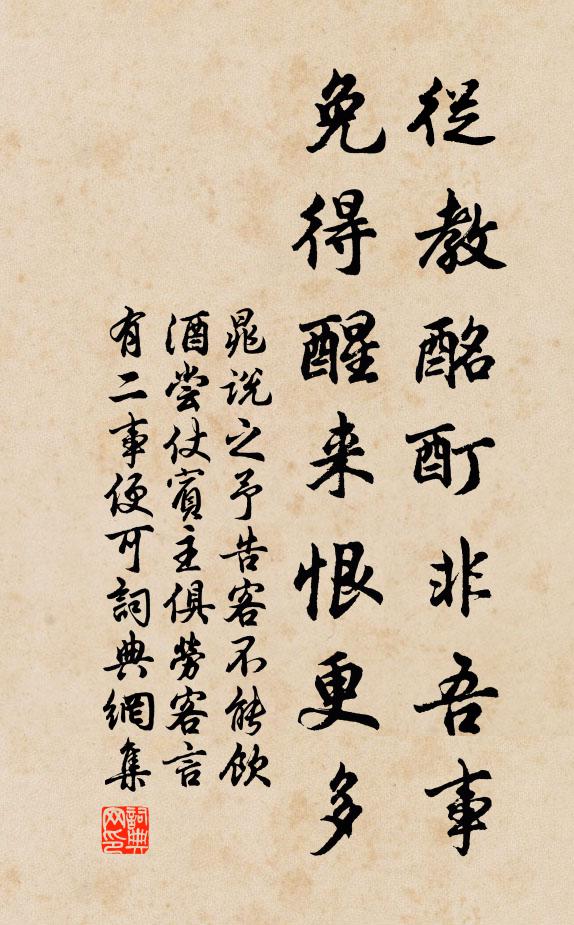 從教酩酊非吾事
免得醒来恨更多
晁說之予告客不能飲
酒嘗仗賓主俱勞客言
有二事便可詞典網集
詞典
网印